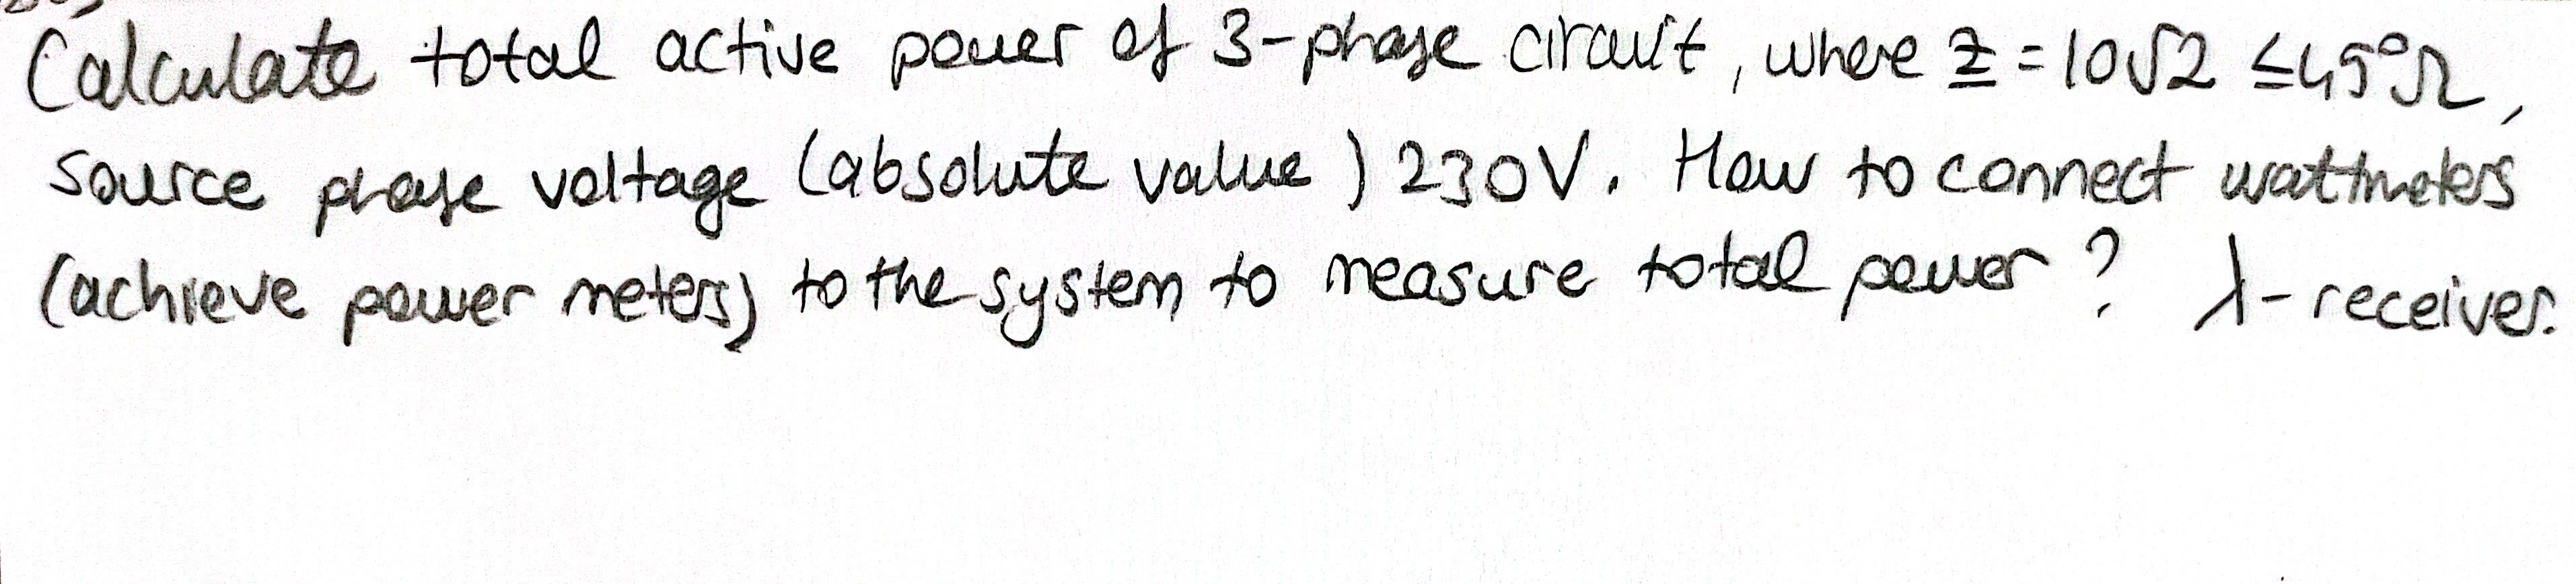 Calculate total active power of 3-phase circuit, where z = 10√2 ∠45°Ω,
source phase voltage (absolute value) 230V. How to connect wattmeters
(achieve power meters) to the system to measure total power? λ-receiver.